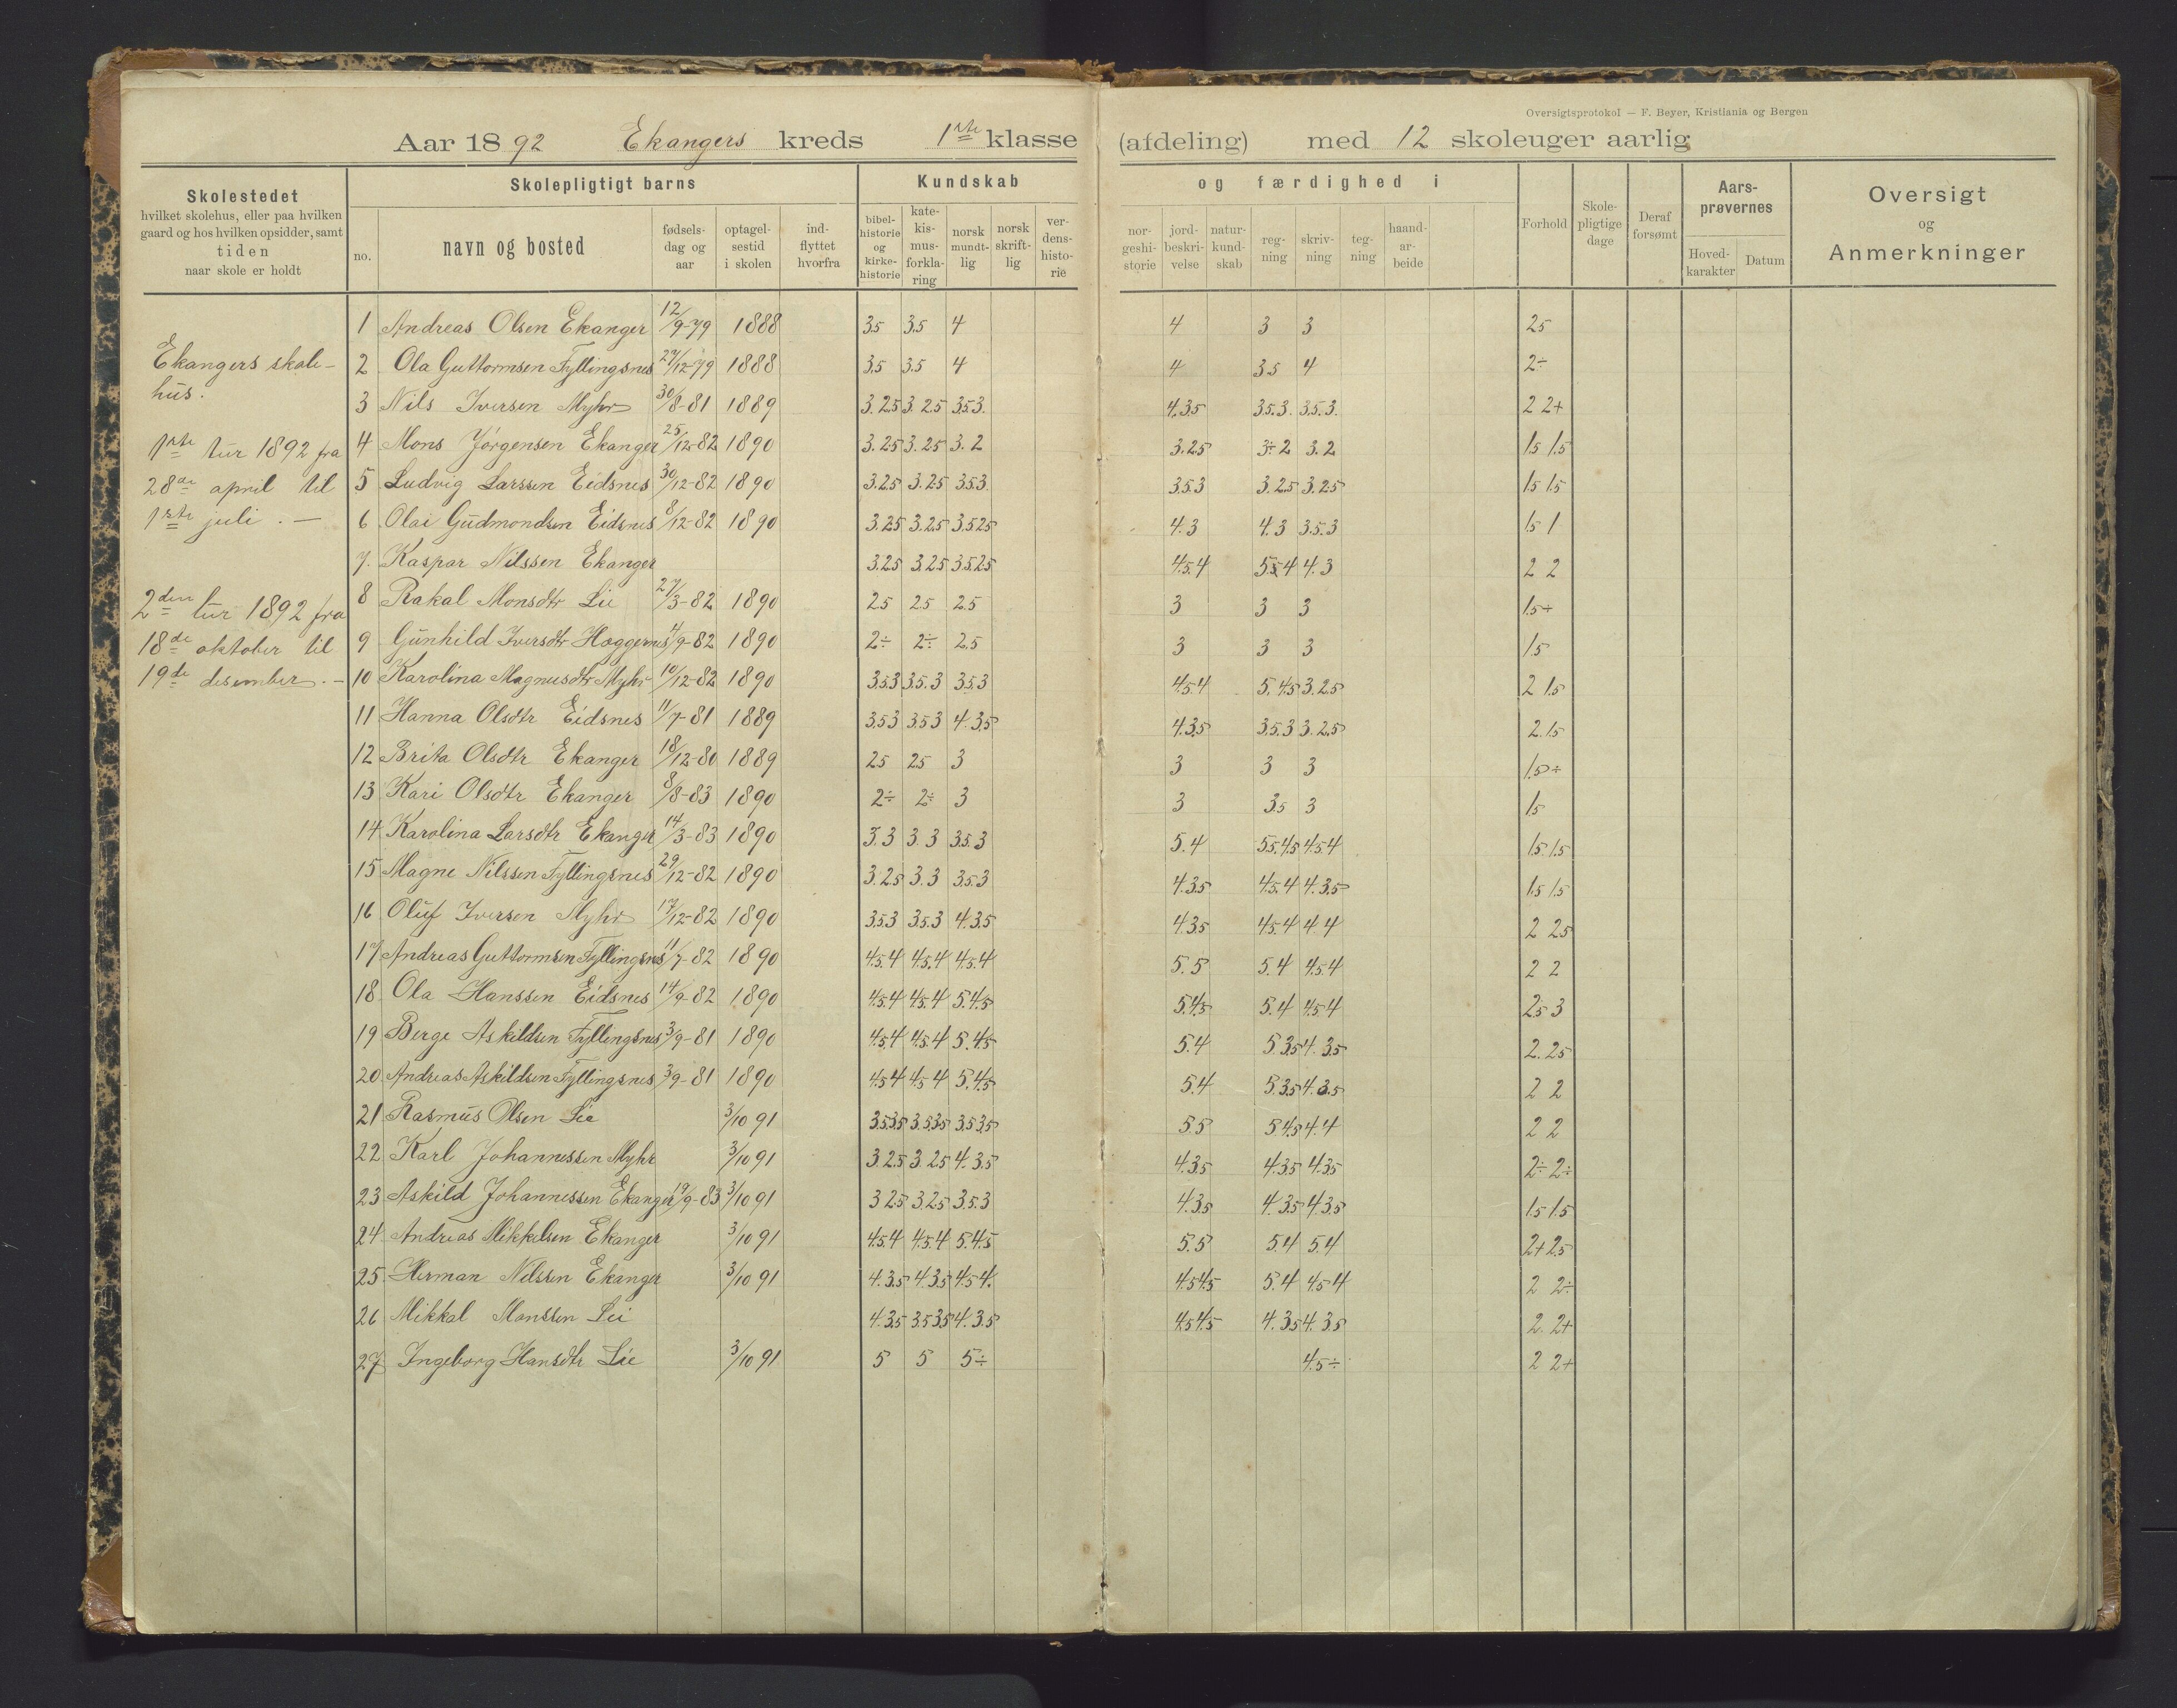 Oversigtsprotokol — F. Beyer, Kristiania og Bergen
Aar 1892 Ekangers kreds 1ste klasse (afdeling) med 12 skoleuger aarlig
Skolestedet
hvilket skolehus, eller paa hvilken
gaard og hos hvilken opsidder, samt
tiden
naar skole er holdt
Skolepligtigt barns
no.
navn og bosted
fødsels-
dag og
aar
optagel-
sestid
i skolen
ind-
flyttet
hvorfra
Kundskab og færdighed i
bibel-
historie
og
kirke-
historie
kate-
kis-
mus-
forkla-
ring
norsk
mundt-
lig
norsk
skrift-
lig
ver-
dens-
histo-
rie
nor-
geshi-
storie
jord-
beskri-
velse
natur-
kund-
skab
reg-
ning
skriv-
ning
teg-
ning
haand-
ar-
beide
Forhold
Skole-
pligtige
dage
Deraf
forsømt
Aars-
prøvernes
Hoved-
karakter
Datum
Oversigt
og
Anmerkninger
Ekangers skole-
hus.
1ste tur 1892 fra
28de april til
1ste juli. —
2den tur 1892 fra
18de oktober til
19de desember. —
1 Andreas Olsen Ekanger 12/9-79 1888 3.5 3.5 4 4 3 3 2.5
2 Ola Guttormsen Fyllingsnes 27/12-79 1888 3.5 3.5 4 4 3.5 4 2÷
3 Nils Iversen Myhr 30/8-81 1889 3. 2.5 3. 2.5 3.5.3. 4.3.5 3.5.3. 3.5.3. 2 2+
4 Mons Jørgensen Ekanger 25/12-82 1890 3. 2.5 3. 2.5 3. 2 3.2.5 3÷ 2 3.2 1.5 1.5
5 Ludvig Larssen Eidsnes 30/12-82 1890 3.2.5 3.2.5 3.5.3. 3.5.3 3.2.5 3.2.5 1.5 1.5
6 Olai Gudmondsen Eidsnes 8/12-82 1890 3.2.5 3.2.5 3.5 2.5 4.3 4.3 3.5.3 1.5 1
7. Kaspar Nilssen Ekanger 3.2.5 3.2.5 3.5.2.5 4.5.4 5.5 4 4.3 2 2
8 Rakal Monsdtr Lie 27/3-82 1890 2.5 2.5 2.5 3 3 3 1.5÷
9 Gunhild Iversdtr Hoggernes 4/9-82 1890 2÷ 2÷ 2.5 3 3 3 1.5
10 Karolina Magnusdtr Myhr 10/12-82 1890 3.5.3 3.5.3 3.5.3 4.5.4 5. 4.5 3.2.5 2 1.5
11 Hanna Olsdtr Eidsnes 11/7-81 1889 3.5.3 3.5.3 4.3.5 4.3.5 3.5.3 3.2.5 2.1.5
12 Brita Olsdtr Ekanger 18/12-80 1889 2.5 2.5 3 3 3 3 1.5÷
13 Kari Olsdtr Ekanger 8/8-83 1890 2÷ 2÷ 3 3 3.5 3 1.5
14 Karolina Larsdtr Ekanger 14/3-83 1890 3.3 3 3 3.5.3 5.4 5.5.4.5 4.5.4 1.5.1.5
15 Magne Nilssen Fyllingsnes 29/12-82 1890 3.2.5 3.3 3.5.3 4.3.5 4.5.4 4.3.5 1.5 1.5
16 Oluf Iversen Myhr 17/12-82 1890 3.5.3 3.5.3 4.3.5 4.3.5 4.5.4 4 4 2 2.5
17 Andreas Guttormsen Fyllingsnes 11/7-82 1890 4.5.4 4.5.4 4.5.4 5.5 5.4 4.5.4 2 2
18 Ola Hanssen Eidsnes 14/9-82 1890 4.5.4 4.5.4 5.4.5 5.4.5 5.4 4.5.4 2.5 3
19 Berge Askildsen Fyllingsnes 3/9-81 1890 4.5.4 4.5.4 5.4.5 5.4 5.3.5 4.3.5 2.2.5
20. Andreas Askildsen Fyllingsnes 3/9-81 1890 4.5 4 4.5 4 5.4.5 5.4 5.3.5 4.3.5 2 2
21 Rasmus Olsen Lie 3/10 91 3.5.3.5 3.5.3.5 3.5.3.5 5.5 5 4.5 4.4 2 2
22 Karl Johannessen Myhr 3/10 91 3.2.5 3.2.5 4.3.5 4.3.5 4.3.5 4.3.5 2÷ 2÷
23 Askild Johannessen Ekanger 19/9-83 3/10 91 3 2.5 3.2.5 3.5.3 4.3.5 4.3.5 4.3.5 1.5 1.5
24 Andreas Mikkelsen Ekanger 3/10 91 4.5.4 4.5.4 5.4.5 5.5 5.4 5.4 2+ 2.5
25 Herman Nilssen Ekanger 3/10 91 4.3.5 4.3.5 4.5 4. 4.5 4.5 5.4 4.5 4 2 2÷
26 Mikkal Monssen Lei 4.3.5 3.5 3.5 4.3.5 4.5 4.5 4.3.5 4.3.5 2. 2+
27 Ingeborg Hansdtr Lie 3/10 91 5 5 5÷ 4.5÷ 2 2+